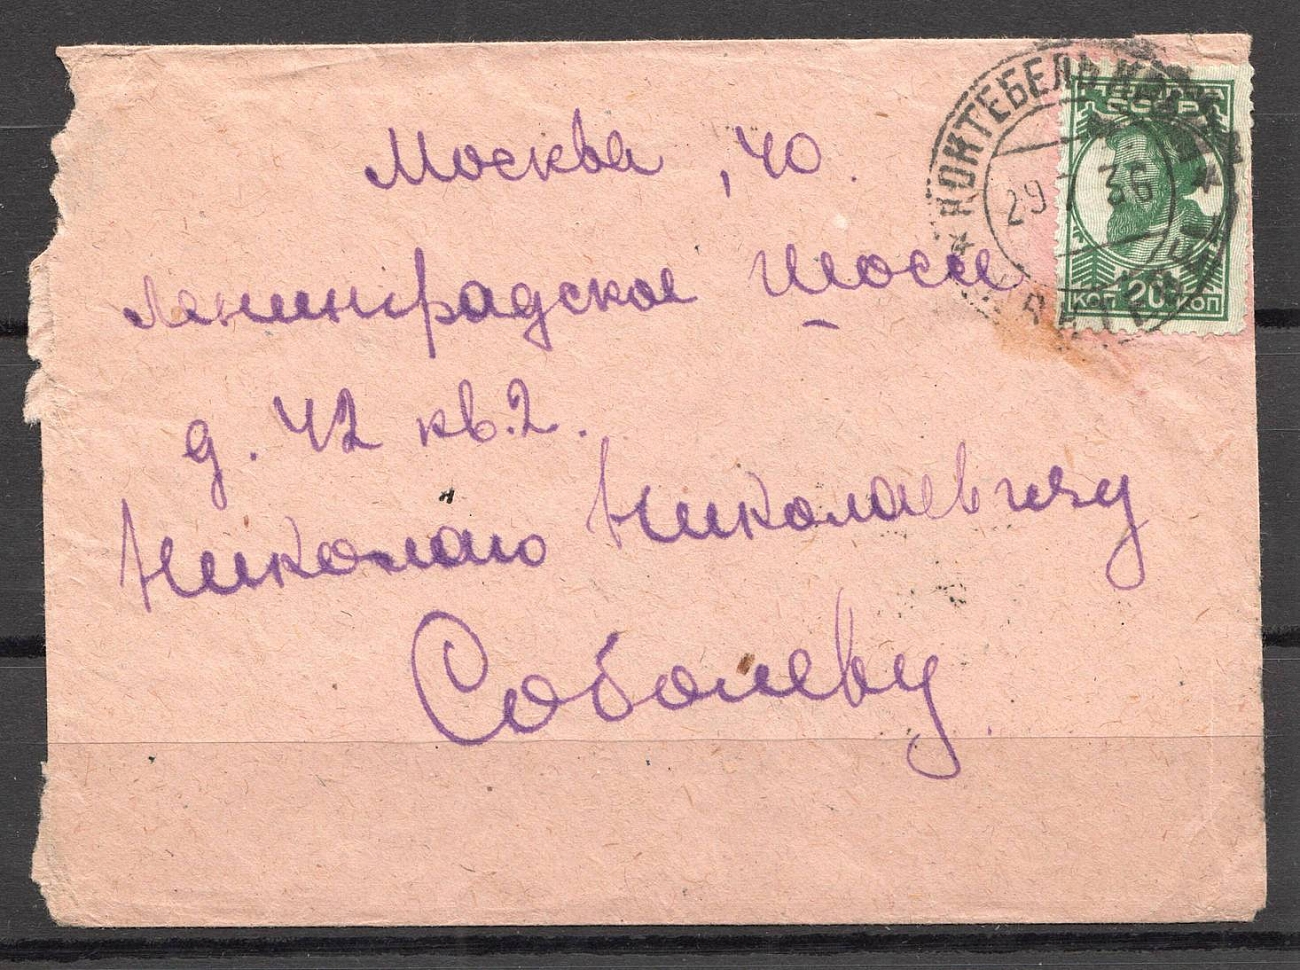 Москва, 40.
Ленинградское шоссе
д. 42 кв. 2.
Николаю Николаевичу
Соболеву
КОКТЕБЕЛЬ
29 36
ПОЧТА
СССР
КОП 20 КОП